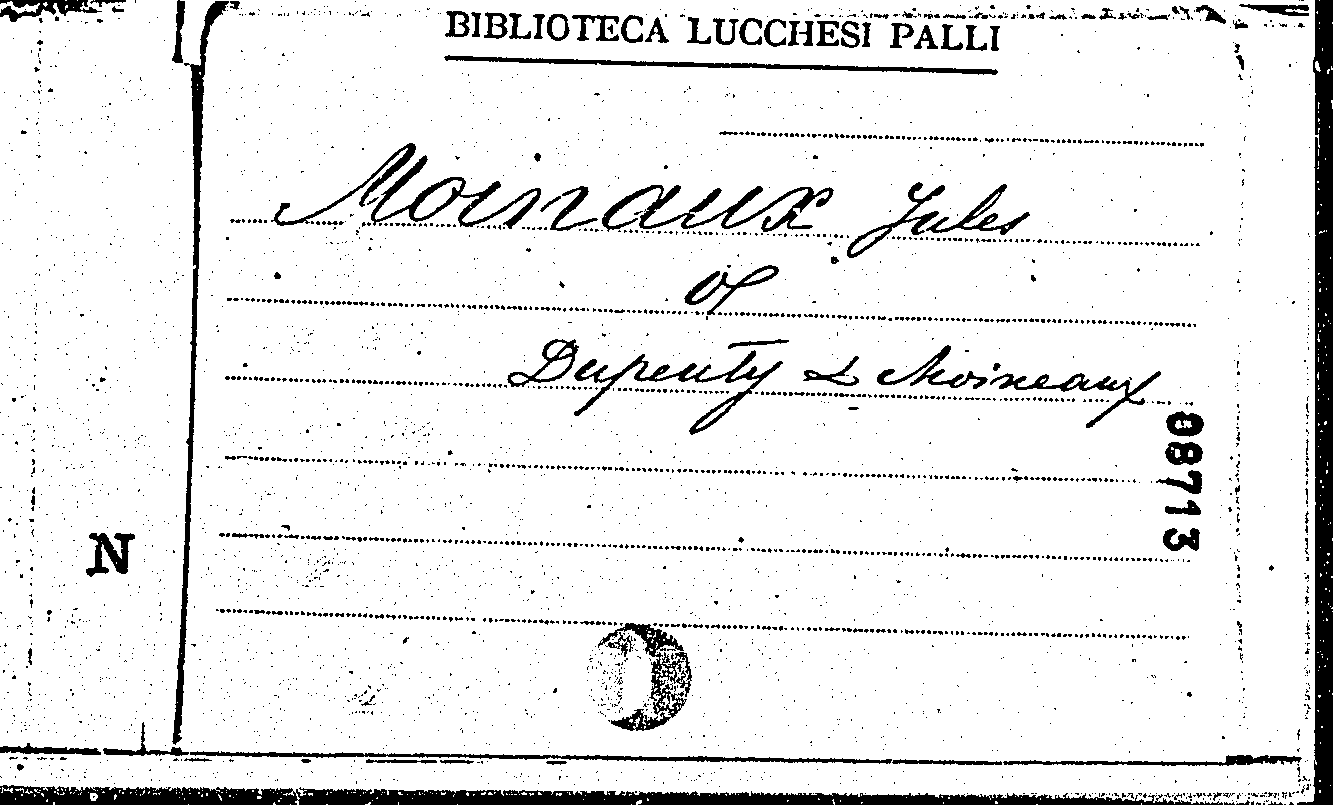 BIBLIOTECA LUCCHESI PALLI
Moinaux Jules
Dupeuty & Moineaux
08713
N